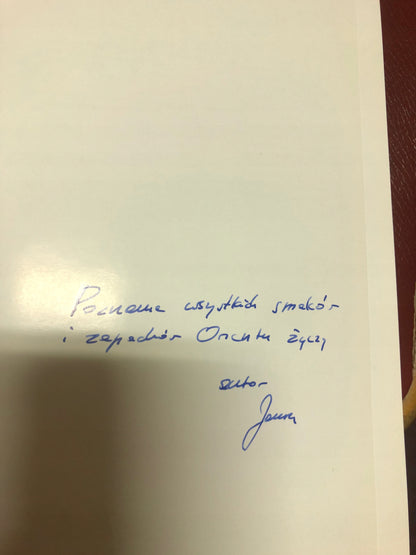 Poznania wszystkich smaków
i zapachów Orientu życzy
autor